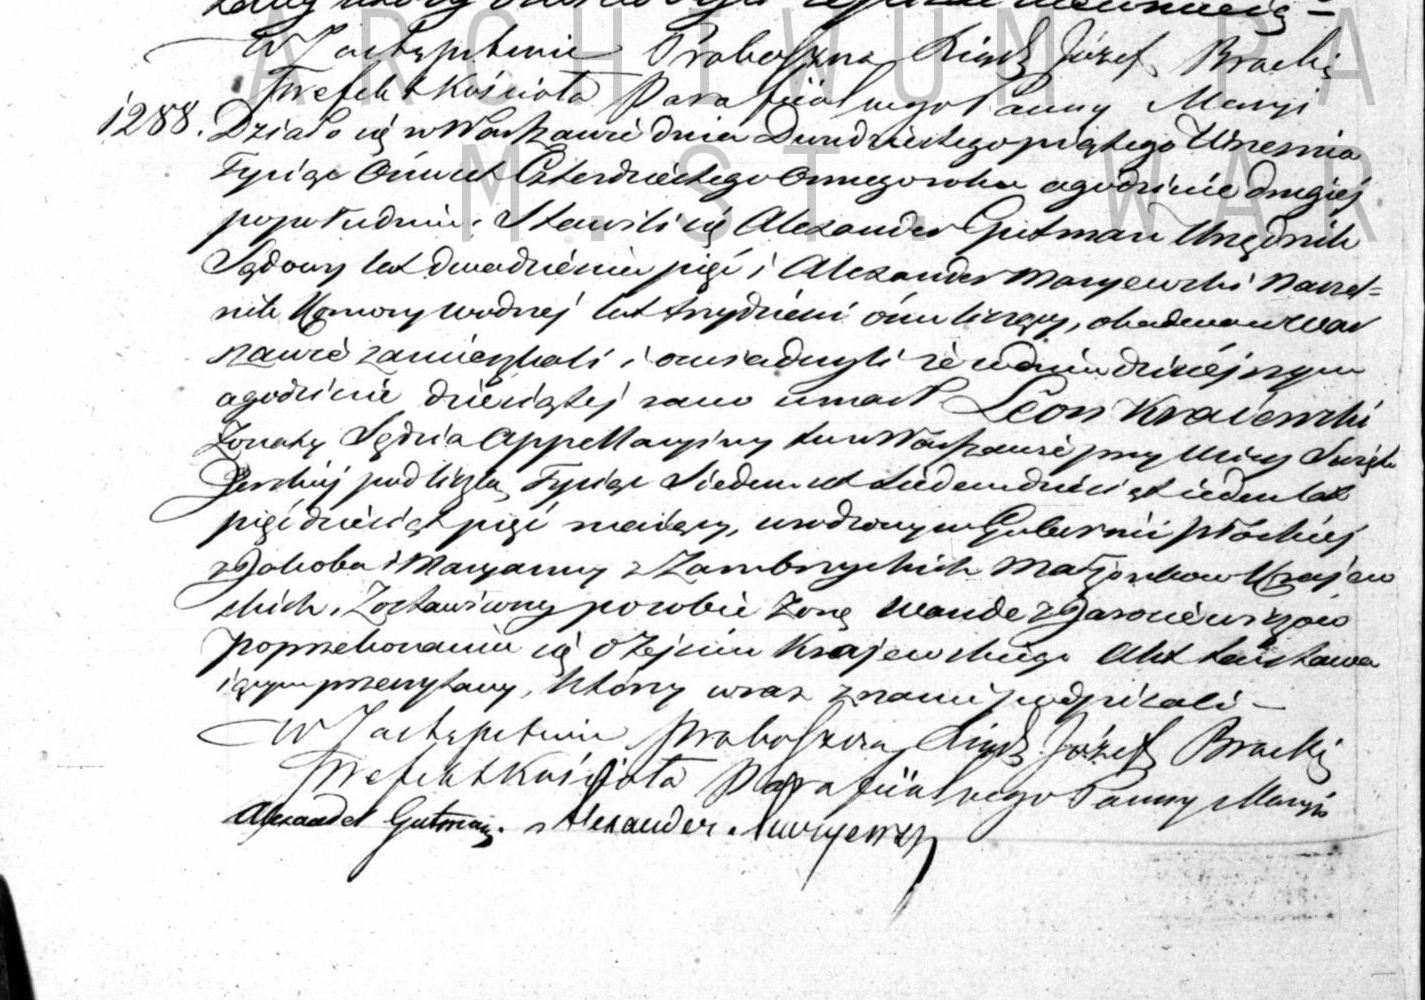 W Zastępstwie Proboszcza Xiądz Józef Bracki
Prefekt Kościoła Parafiialnego Panny Maryi
1288. Działo się w Warszawie dnia Dwudziestego piątego Września
Tysiąc Ośmset Czterdziestego Osmego roku o godzinie drugiej
popołudniu. Stawili się Alexander Gutman Urzędnik
Sądowy lat dwadzieścia pięć i Alexander Maryewski Naczel=
nik Komory wodnej lat trzydzieści ośm liczący, obadwa w War
szawie zamieszkali i oświadczyli że w dniu dzisiejszym
o godzinie dziesiątej rano umarł Leon Krajewski
Żonaty Sędzia Appellacyiny tu w Warszawie przy Ulicy Święto
Jerskiej pod liczbą Tysiąc Siedmset siedemdziesiąt ieden lat
pięćdziesiąt pięć maiący, urodzony w Gubernii Płockiej
z Jakoba i Maryanny z Zambrzyckich Małżonków Krajew
skich. Zostawiwszy po sobie żonę Wandę z
po przekonaniu się o zejściu Krajewskiego Akt ten stawa
iącym przeczytany, który wraz z nami podpisali —
W Zastępstwie Proboszcza Xiądz Józef Bracki
Prefekt Kościoła Parafiialnego Panny Maryi
Alexander Gutman. Alexander Maryewski
ARCHIWUM PA
M. ST. WAR